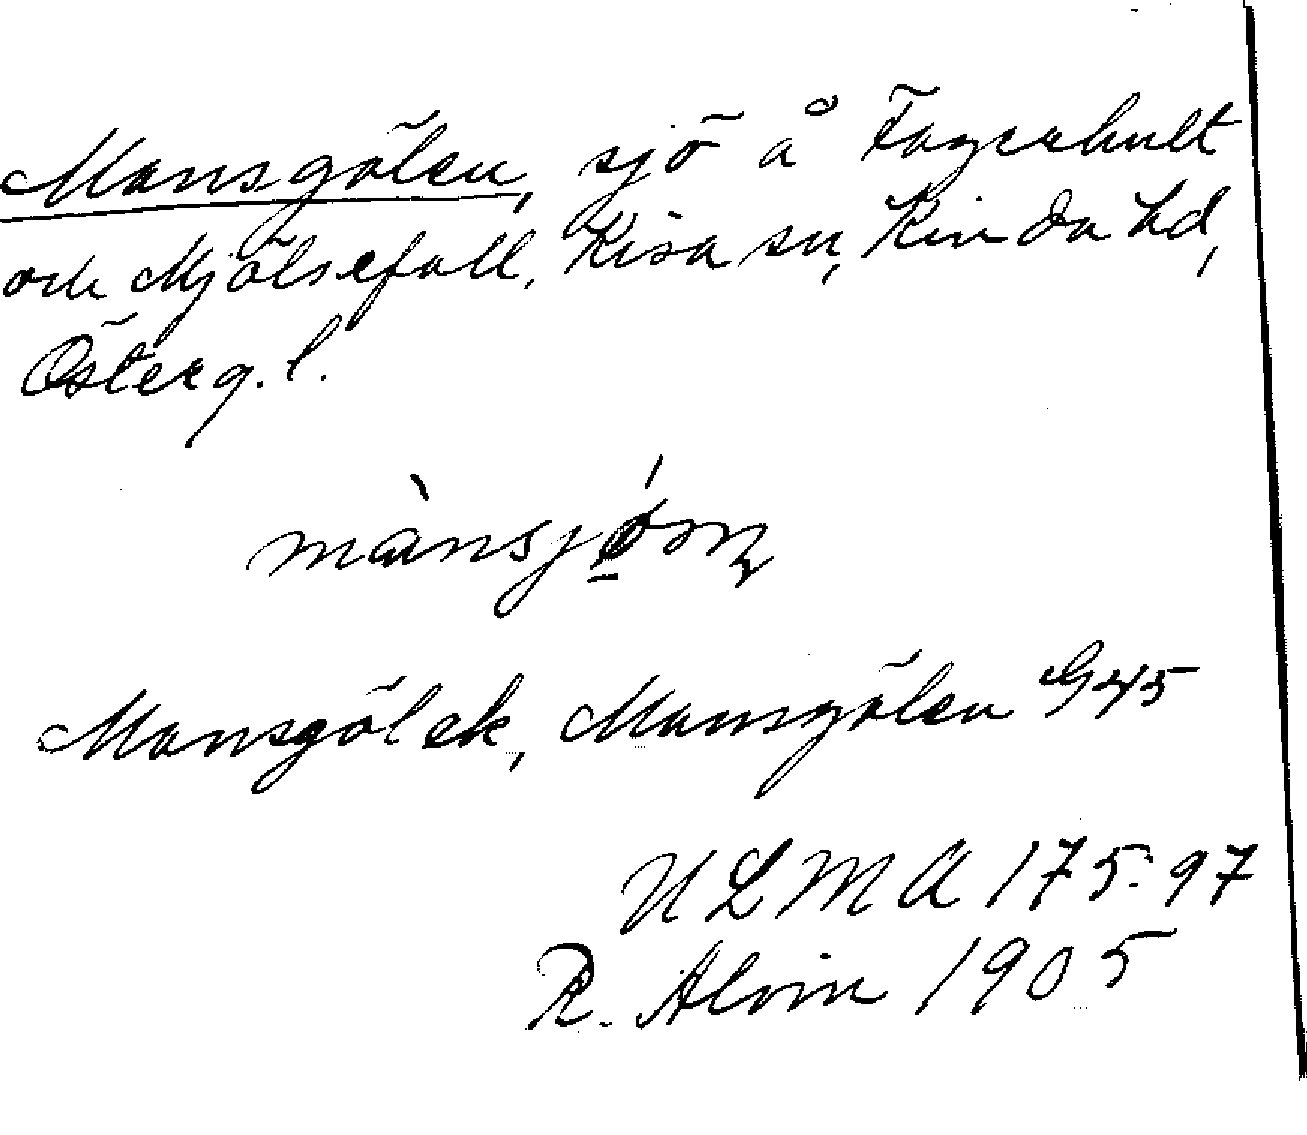 Mansgölen, sjö å Fagerhult
och Mjölsefall, Kisa sn, Kinda hd,
Österg.l.
mànsjǿ̱ɳ
Mansgöl ek, Mansgölen G45
ULMA 175:97
R. Alvin 1905